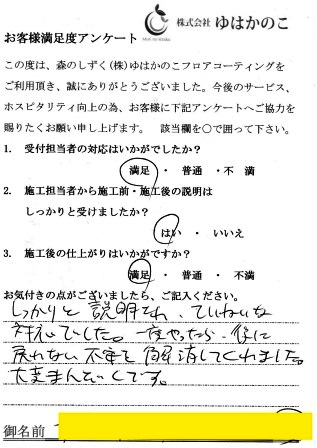 株式会社 ゆはかのこ
お客様満足度アンケート
この度は、森のしずく(株)ゆはかのこフロアコーティングを
ご利用頂き、誠にありがとうございました。今後のサービス、
ホスピタリティ向上の為、お客様に下記アンケートへご協力を
賜りたくお願い申し上げます。 該当欄を○で囲って下さい。
1. 受付担当者の対応はいかがでしたか?
満足 ・ 普通 ・ 不満
2. 施工担当者から施工前・施工後の説明は
しっかりと受けましたか?
はい ・ いいえ
3. 施工後の仕上がりはいかがですか?
満足 ・ 普通 ・ 不満
お気付きの点がございましたら、ご記入ください。
しっかりと説明され、ていねいな
対応でした。一度やったら後に
戻れない不安を解消してくれました。
大変まんぞくです。
御名前